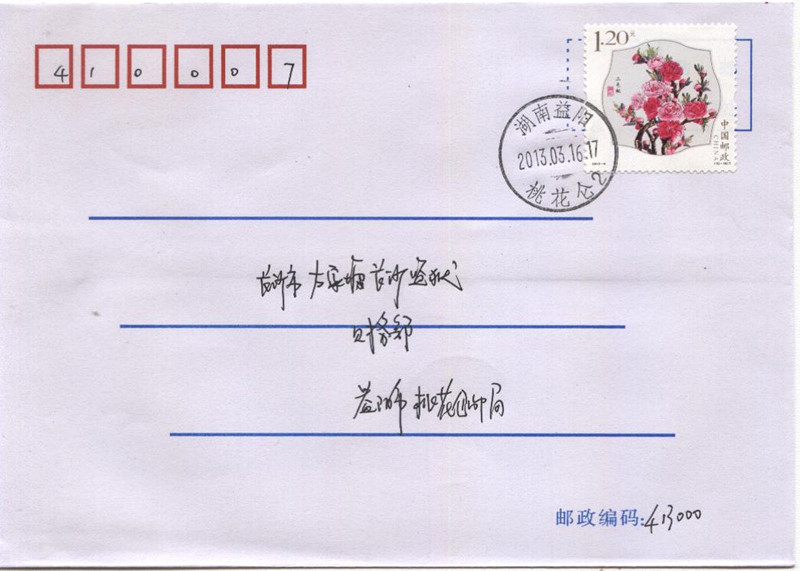 410007
1.20元
中国邮政
CHINA
湖南益阳
2013.03.16.17
桃花仑2
长沙市 左家塘 长沙监狱
财务部
益阳市 桃花仑邮局
邮政编码:413000